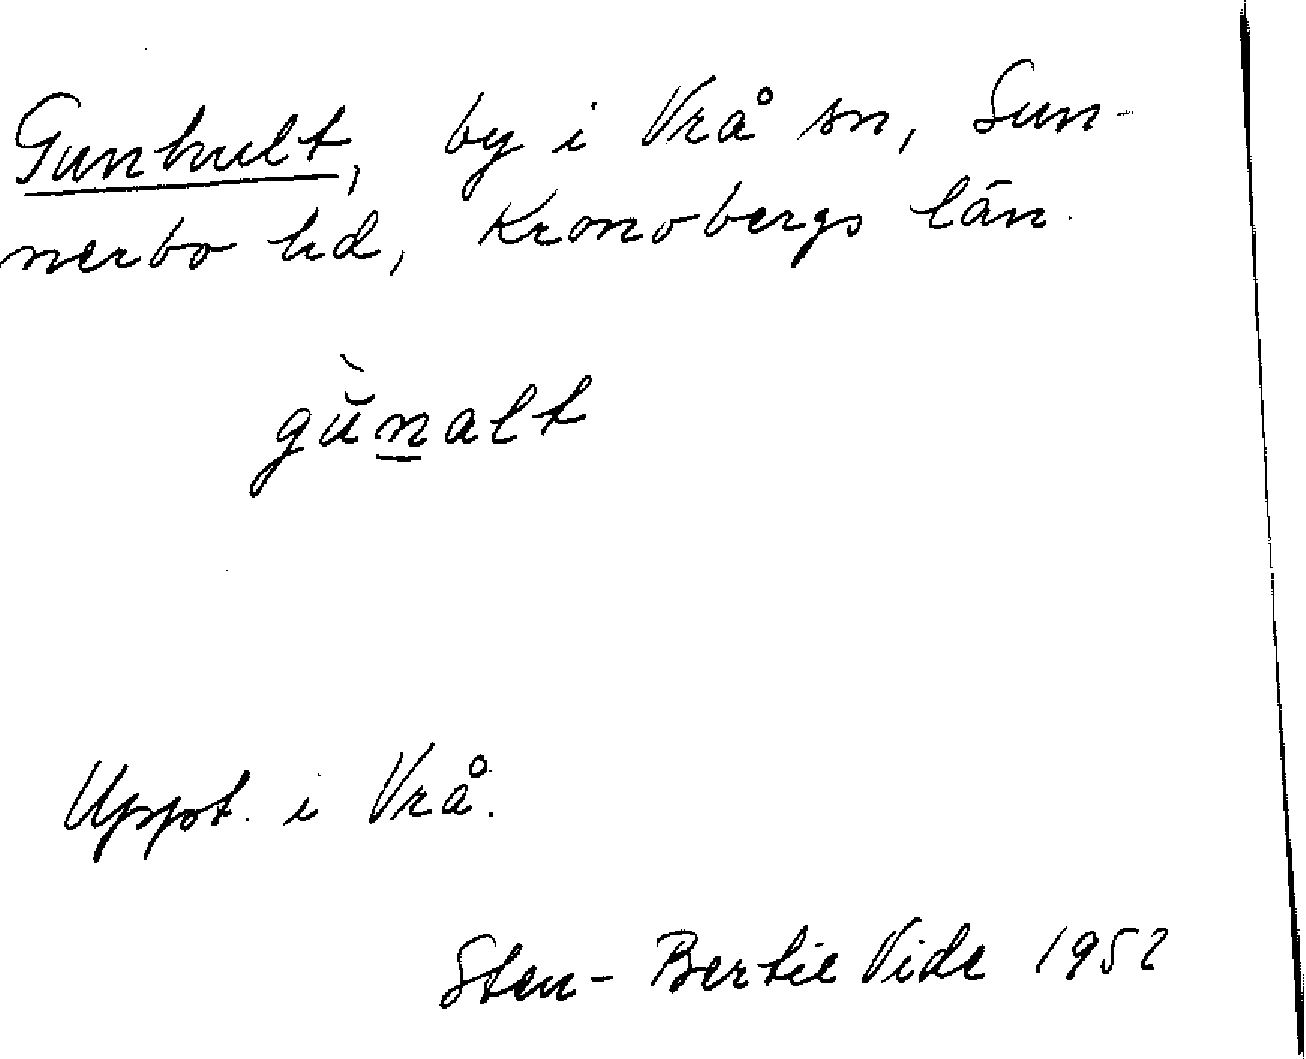 Gunhult, by i Vrå sn, Sun-
nerbo hd, Kronobergs län.
gŭ̀n̲alt
Uppt. i Vrå.
Sten-Bertil Vide 1952